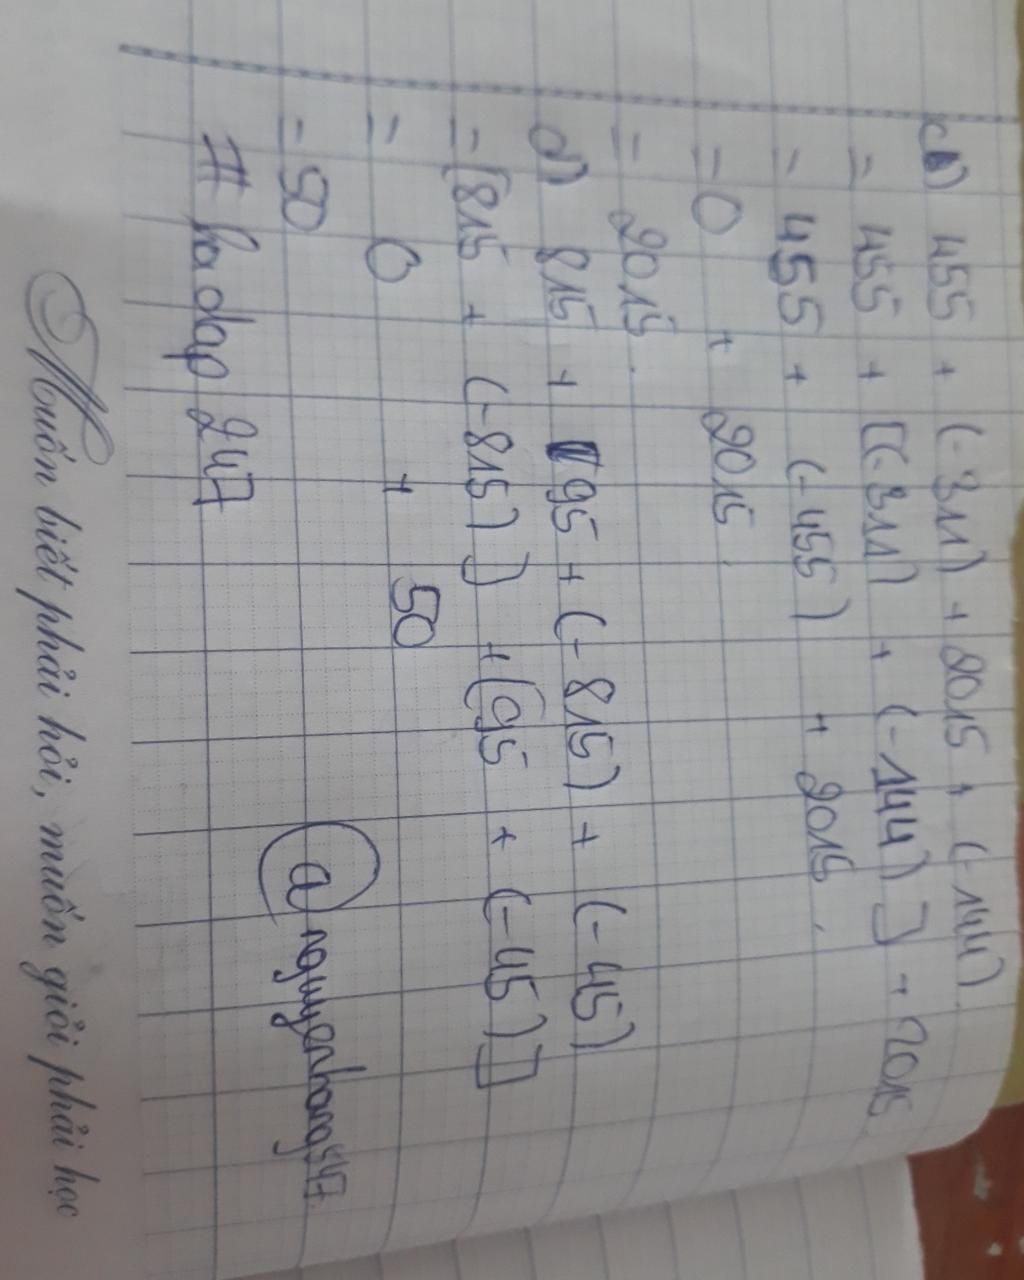 c) 455 + (-311) + 2015 + (-144)
= 455 + [(-311) + (-144)] + 2015
= 455 + (-455) + 2015.
= 0 + 2015.
= 2015.
d) 815 + 95 + (-815) + (-45)
= [815 + (-815)] + [95 + (-45)]
= 0 + 50
= 50
# hoidap 247
@nguyenhong547
Muốn biết phải hỏi, muốn giỏi phải học